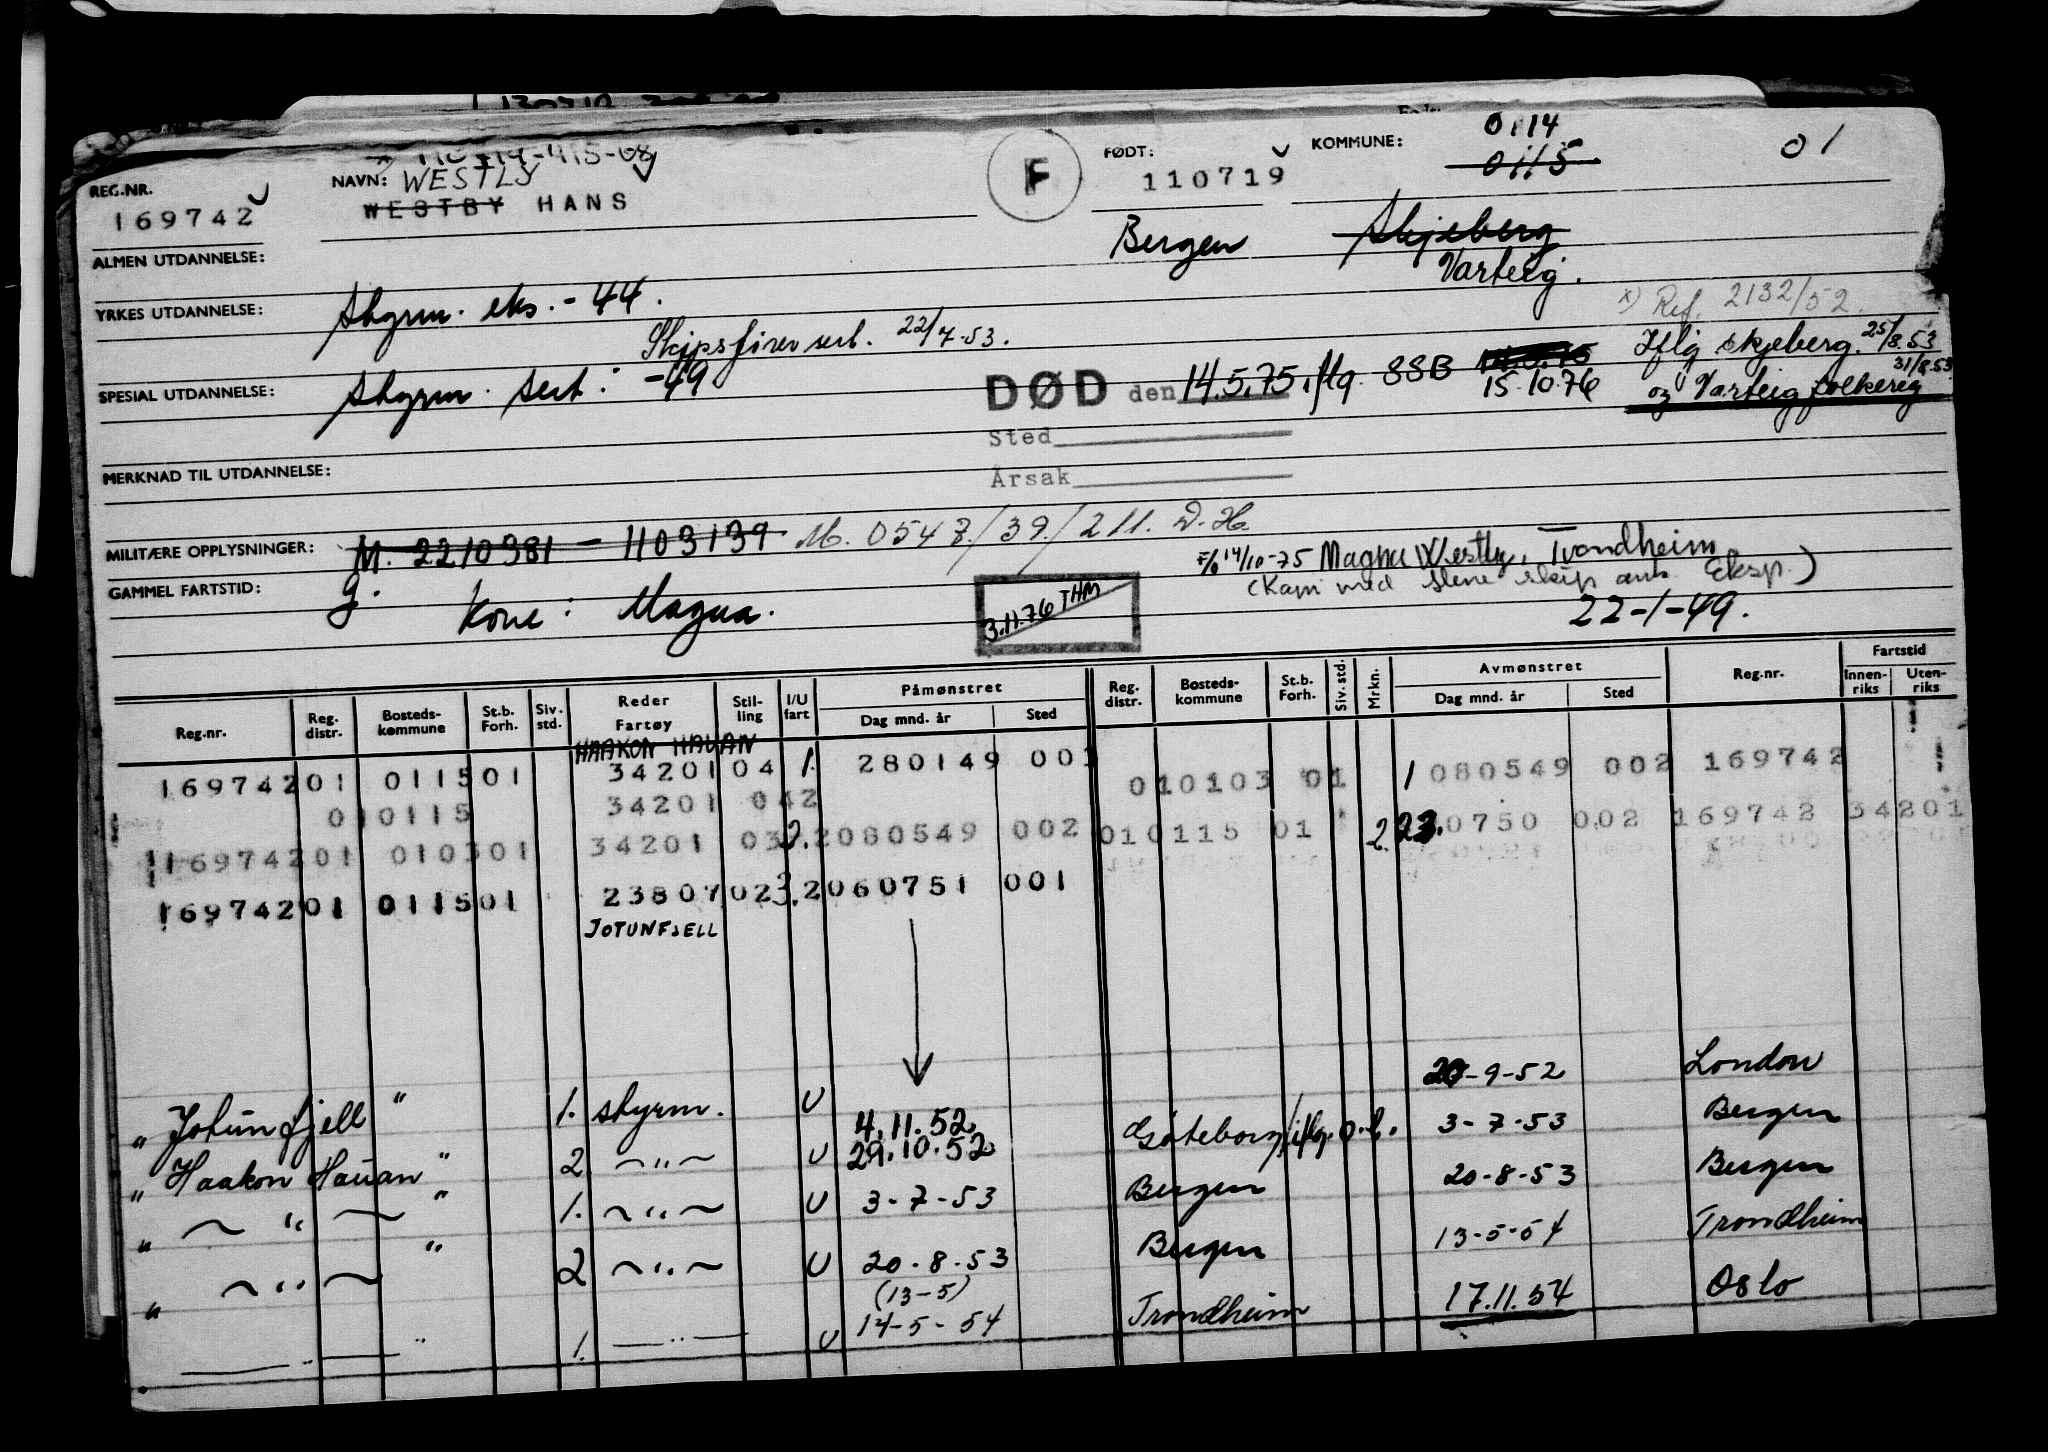 REG.NR. 169742
NAVN: WESTLY
WESTBY HANS
F
FØDT: 110719
Bergen
KOMMUNE: 0114
0115
01
Skjeberg
Varteig.
ALMEN UTDANNELSE:
YRKES UTDANNELSE: Styrm. eks. - 44.
Skipsfører sert. 22/7-53.
x) Ref. 2132/52.
Iflg skjeberg 25/8.53
og Varteig folkereg 31/8.53
SPESIAL UTDANNELSE: Styrm. sert: -49
DØD den 14.5.75. iflg. SSB 15.10.76
Sted
Årsak
MERKNAD TIL UTDANNELSE:
MILITÆRE OPPLYSNINGER: M. 2210381 - 1103139 M. 0547/39/211. D.H.
F/o 14/10-75 Magna Westly, Trondheim
(Kom med slene skip Eksp.)
GAMMEL FARTSTID: g. Kone: Magna.
3.11.76 THM
22-1-49.
Reg.nr. Reg. distr. Bosteds-kommune St.b. Forh. Siv. std. Reder Fartøy Stil-ling I/U fart Påmønstret Dag mnd. år Sted Reg. distr. Bosteds-kommune St.b. Forh. Siv. std. Mrkn. Avmønstret Dag mnd. år Sted Reg.nr. Fartstid Innen-riks Uten-riks
HAAKON HAUAN
169742 01 0115 01 34201 04 1. 280149 003 01 0103 01 1 080549 002 169742
01 0115 34201 042
169742 01 0103 01 34201 03 2. 2080549 002 01 0115 01 2. 23.0750 002 169742 34201
169742 01 0115 01 23807 02 3. 2060751 001
JOTUNFJELL
20-9-52 London
" Jotunfjell " 1. styrm. U 4.11.52 Göteborg iflg. o.b. 3-7-53 Bergen
" Haakon Hauan " 2. ~"~ U 29.10.52 Bergen 20-8-53 Bergen
" ~"~ " 1. ~"~ U 3-7-53 Bergen 13-5-54 Trondheim
" ~"~ " 2 ~"~ U 20-8-53
(13-5)
Trondheim 17.11.54 Oslo
—"— " 1. —"— U 14-5-54